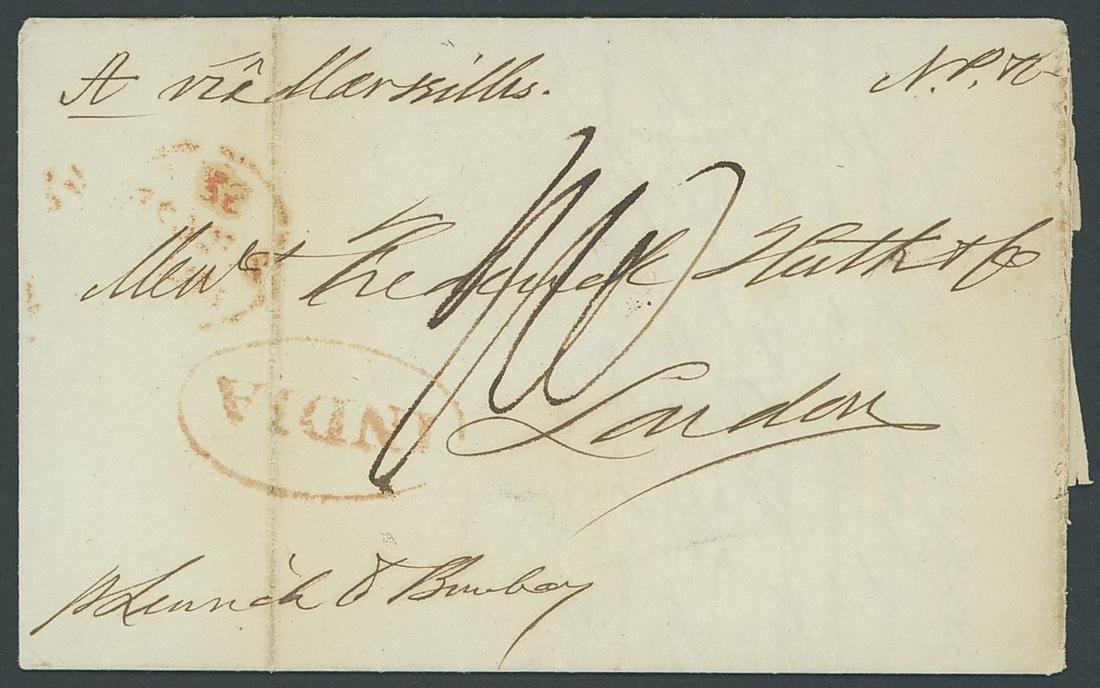 A viâ Marseilles.
Mess.rs Frederick Huth & Co
London
INDIA
p Lanrick & Bombay